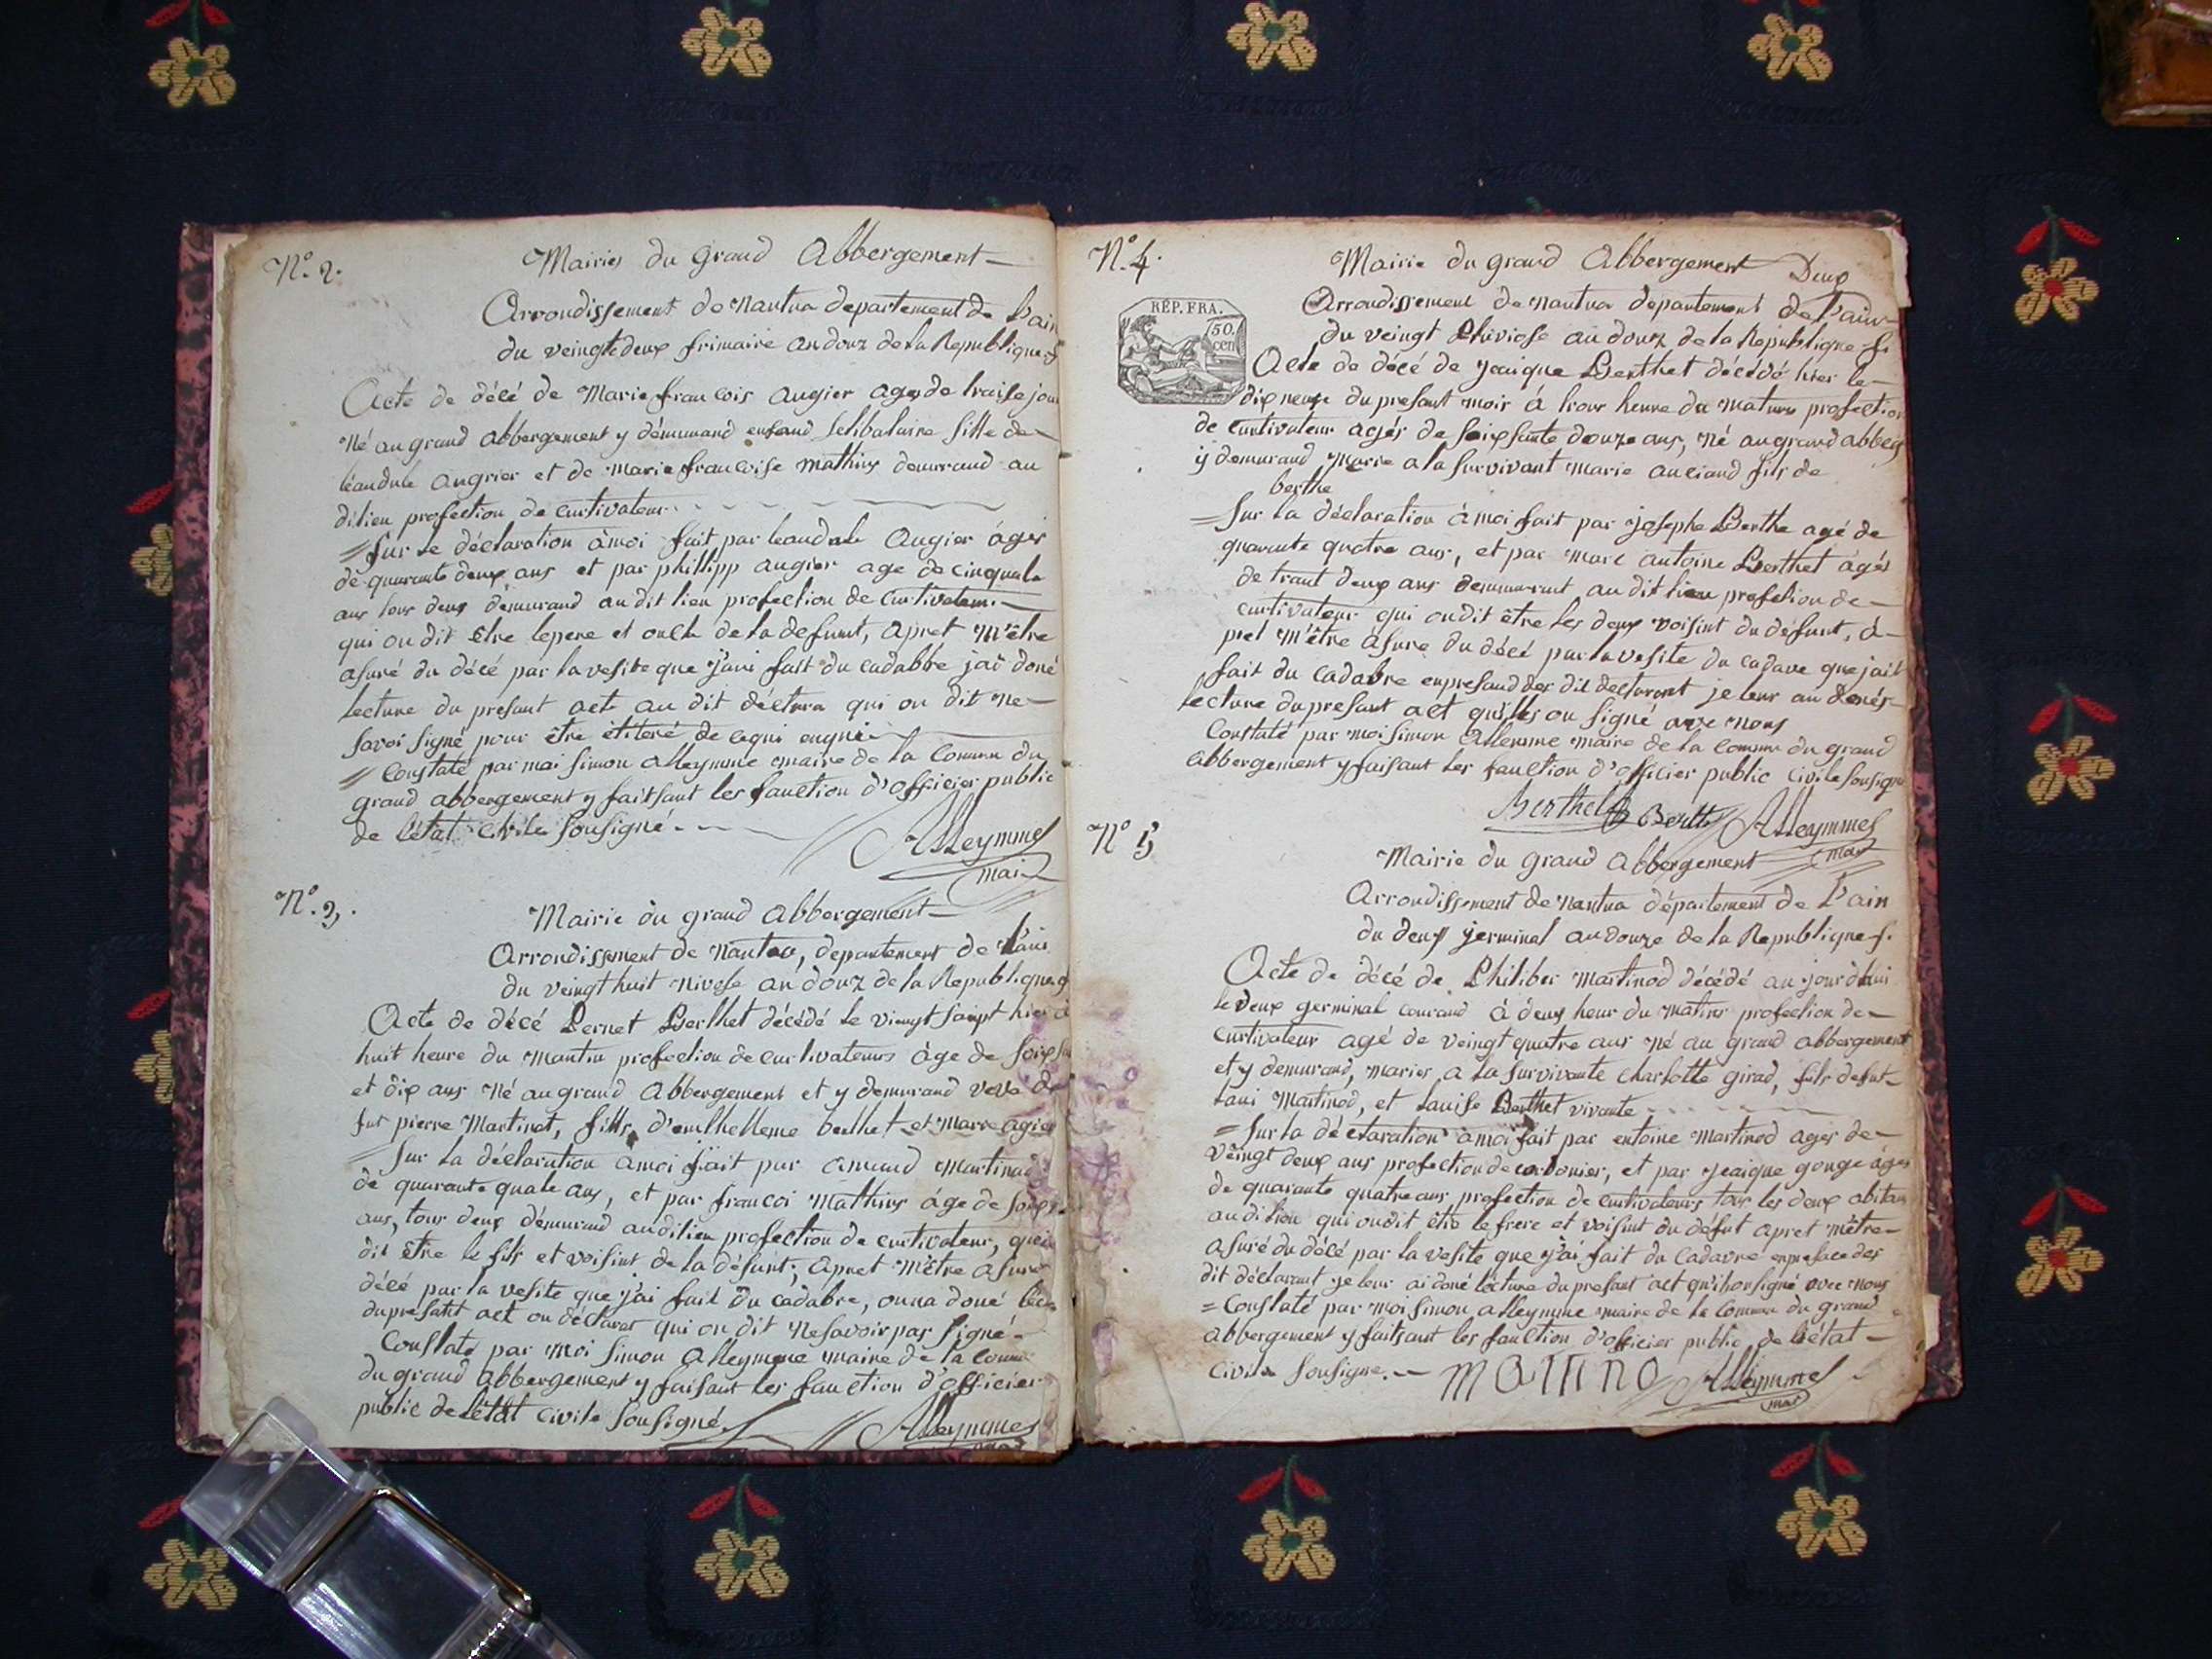 N.º 2.
Mairies du Grand Abbergement
Arrondissement de Nantua departement de L'ain
du veingtedeux frimaire an douz de la Republique f
Acte de décé de Marie francois augier ages de traise jour
Né au grand abbergement y démurand enfand selibataire fille de
léandule angrier et de Marie francoise Mathieux demurand au
dilieu profection de curtivateur
Sur le déclaration à moi fait par leandule augier áges
dé quarante deux ans et par phillipp augier age de cinquate
ans tous deux démurand au dit lieu profection de curtivateur.
qui on dit être le pere et oncle de la defunt, apret M'être
asuré du décé par la vesite que j'ani fait du cadabbre jai doné
lecture du presant acte au dit déctura qui on dit ne
savoi signé pour être étiteré de cequi enquis
Constaté par moi Simon alleymme maire de la Comun du
grand abbergement y faitsant les fauction d'officier public
de l'état civile sousigné
Alleymmes
mai
N.º 3.
Mairie du grand abbergement
Arrondissment de Nantua, departement de L'ain
du veingt huit Nivose an douz de la Republique
Acte de décé Pernet Berthet décédé le vieingt saipt hier à
huit heure du Mantin profection de curtivateurs àge de soixsan
et dix ans Né au grand abbergement et y demurand veve de
fut pierre Martinet, fills d'enthelleme berthet et Marre agier
Sur la déclaration à moi fait par amand Martinad
de quarante quate ans, et par francoi Mathieux áge de soixs
ans, tour deux démurand au dilieu profection de curtivateur, qui
dit être le fils et voisint de la défunt; apret M'être asuré
décé par la vesite que j'ai fait du cadabre, on na doné lec
du presant act on déclarat qui on dit Ne savoir pas signé
Constaté par moi Simon alleymme maire de la Comu
du grand abbergement y faisant les fauction d'officier
public de l'état civile sousigné
Alleymmes
mai
N.º 4.
Mairie du grand Abbergement Deux
RÉP. FRA.
50.
cen
Arrondissement de Nantua departement de L'ain
du veingt Pluviose an douz de la Republique f.
Acte de décé de Jeaique Berthet décédé hier le
dix neufe du presant moir á trois heure du matins profection
de curtivateur agés de soixsante douze ans, Né au grand abberg
y demurand Marie a la survivant Marie anciand fils de
berthe
Sur la déclaration à moi fait par Josephe Berthe agé de
quarante quatre ans, et par Marc antoine Berthet ágés
de trant deux ans demmurant au dit lieu profection de
curtivateur qui on dit être les deux voisint du défunt, á-
pret M'être ásure du décé par la vesite du cadave que jait
fait du cadabre en presand des dit decturont je leur au donés
lecture du presant act quilles on signé avve nous
Constaté par moi simon Allemme maire de la comune du grand
abbergement y faisant les fauction d'officier public civile sousigné
Berthet Berthe Alleymmes
mai
N.º 5
Mairie du grand abbergement
Arrondissement de Nantua département de L'ain
du deux germinal an douze de la Republique f.
Acte de décé de Philiber Martinod décédé au jourdhui
le deux germinal courand à deux heur du matins profection de
curtivateur agé de veingt quatre ans Né au grand abbergement
et y demurand, maries a la survivante Charlotte girad, fils defut
Laui Martinod, et Lauise Berthet vivante
Sur la déctaration à moi fait par entoine Martinod ages de
veingt deux ans profection de cordonier, et par Jeaique gouge áges
de quarante quatre ans profection de curtivateurs tous les deux abitan
au dilieu qui on dit être le frere et voisint du défut apret m'être
asuré du décé par la vesite que j'ai fait du cadavre enpresace des
dit déclarant je leur ai doné lécture du presant act qu'ihon signé avec nous
Constaté par moi Simon alleymme maire de la Comun du grand
abbergement y faitsant les fauction d'officier public de l'état
civile sousigne.
Alleymmes
mai